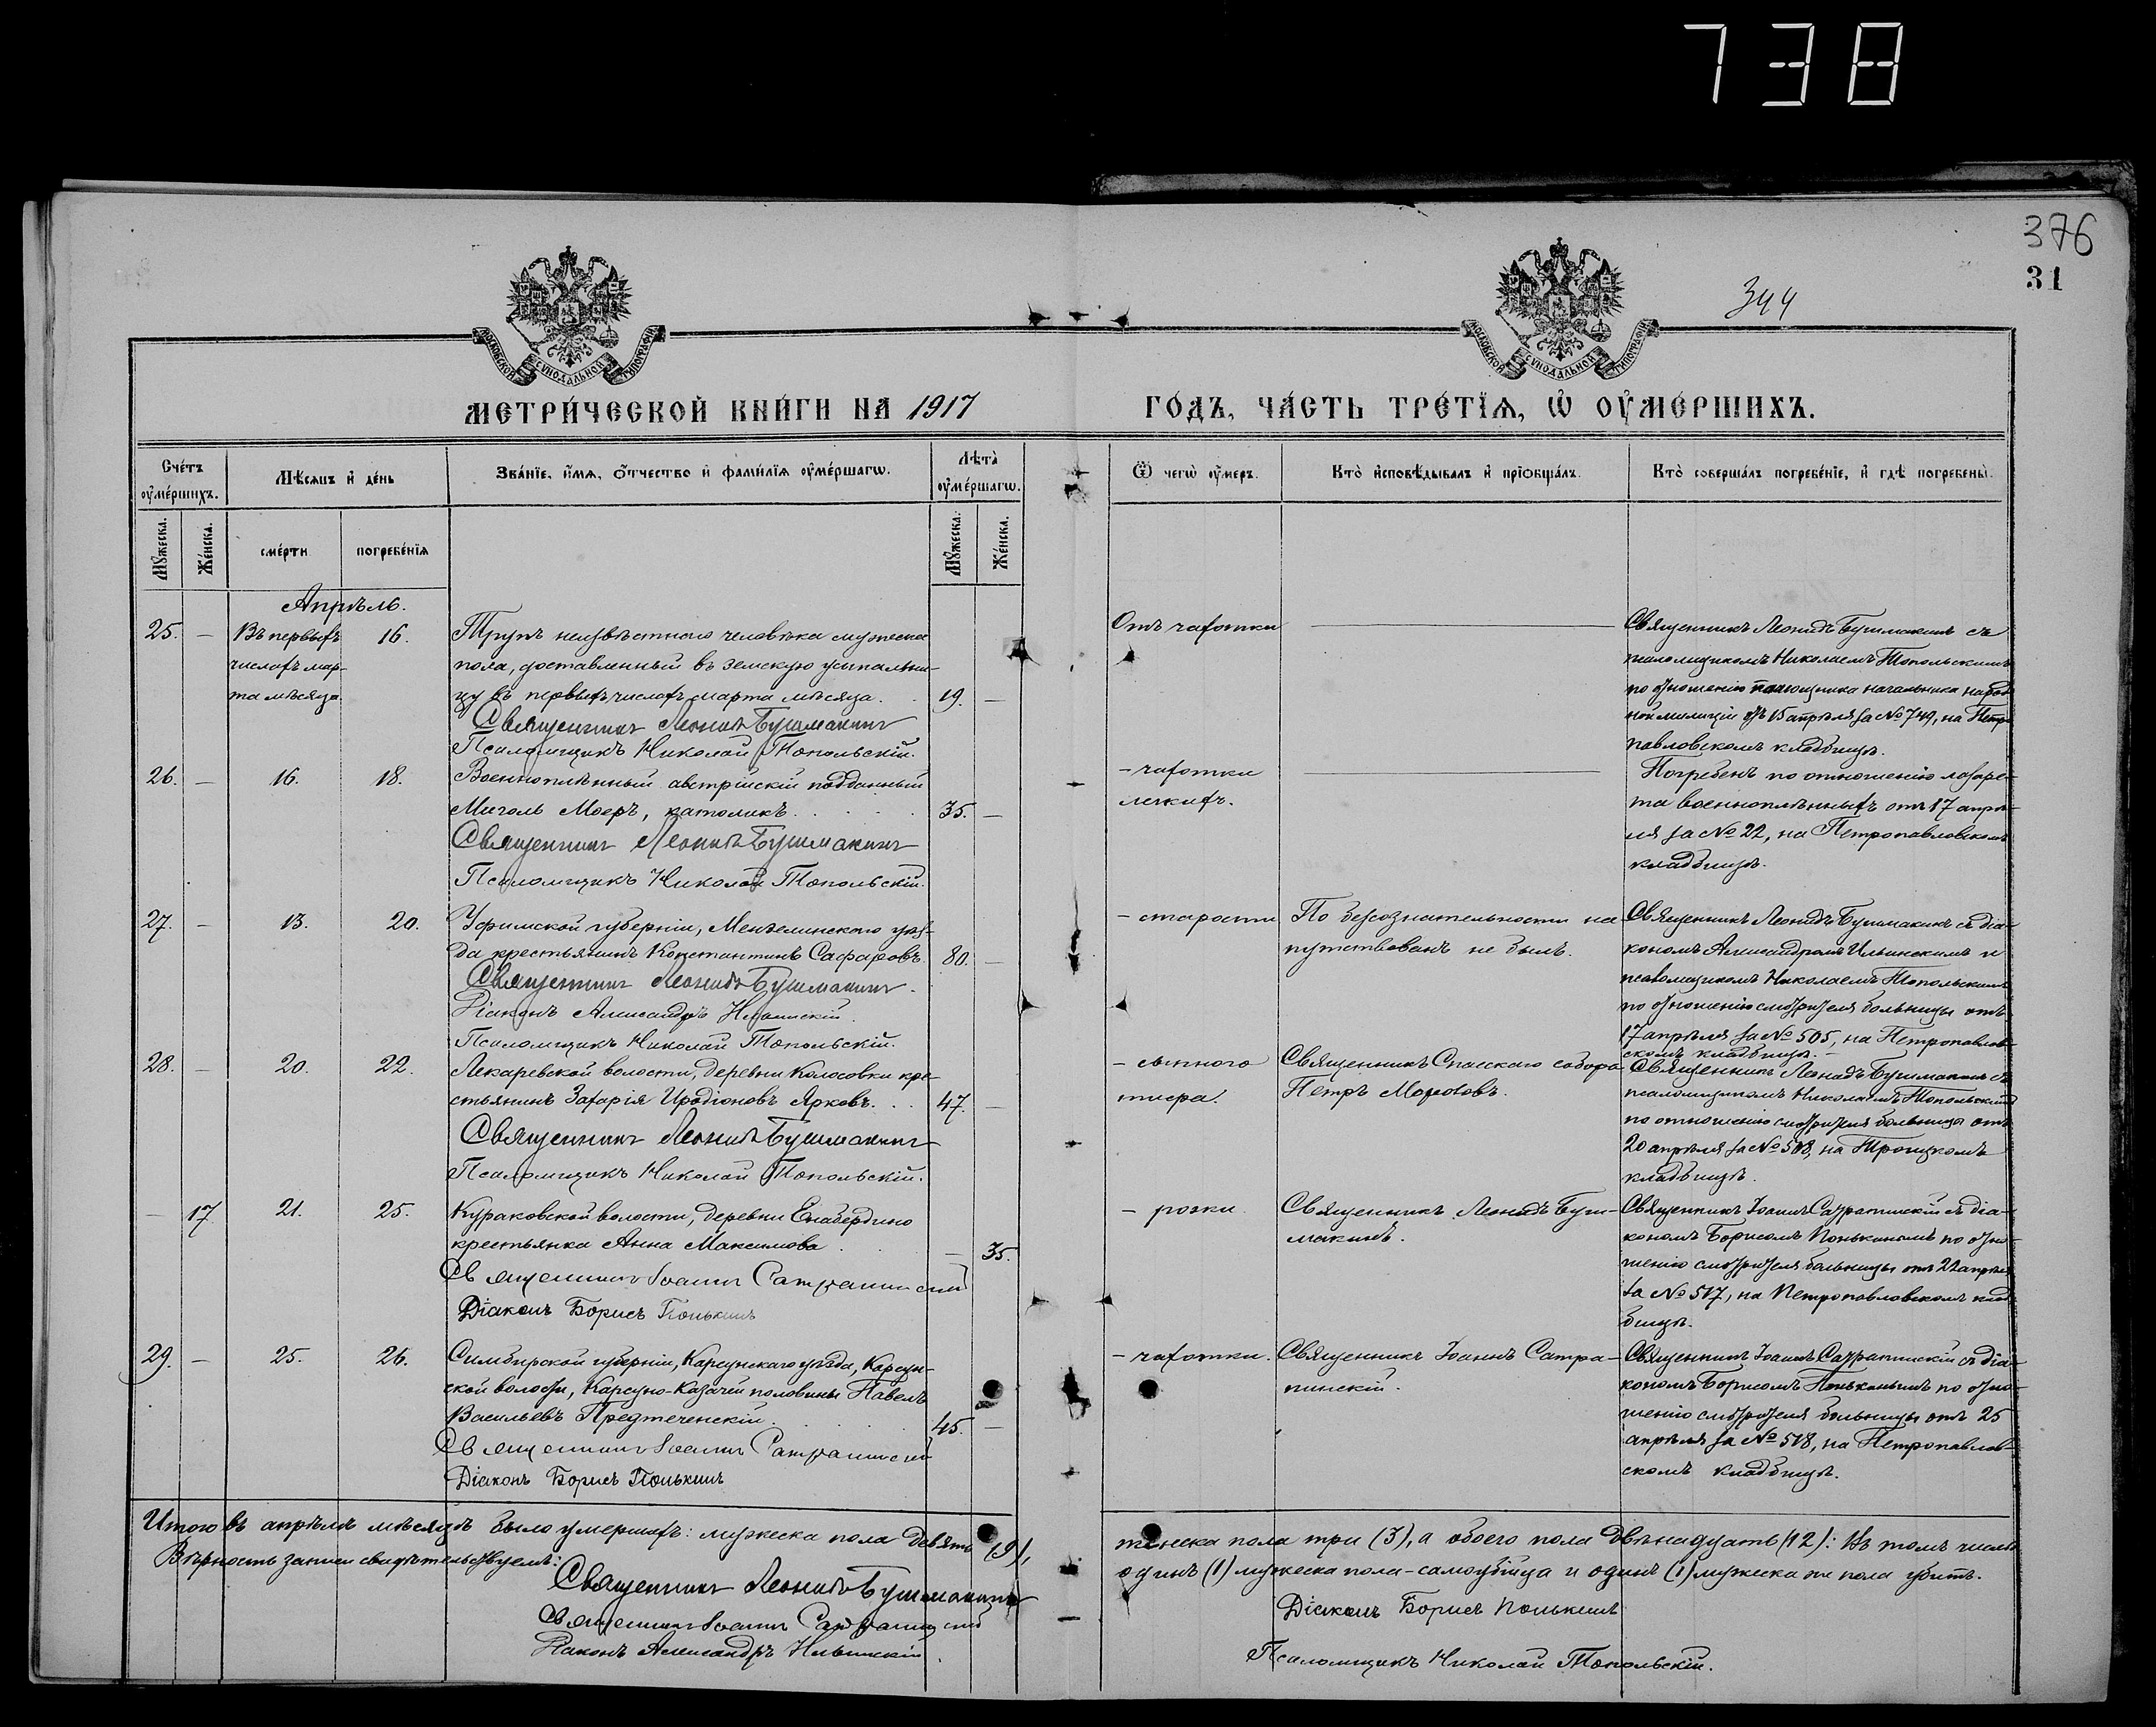 738
376
31
344
МОСКОВСКОЙ СѴНОДАЛЬНОЙ ТИПОГРАФІИ
МОСКОВСКОЙ СѴНОДАЛЬНОЙ ТИПОГРАФІИ
МЕТРИ́ЧЕСКОЙ КНИ́ГИ НА 1917
ГО́ДЪ, ЧА́СТЬ ТРЕ́ТЇѦ, Ѡ ОУМЕ́РШИХЪ.
Сче́тъ оуме́ршихъ.
Мѣсѧцъ и де́нь
Зва́нїе, и́мѧ, о́тчество и фами́лїѧ оуме́ршагѡ.
Лѣта̀ оуме́ршагѡ.
Ѿ чегѡ̀ оу́меръ.
Кто̀ исповѣ́дывалъ и прїобща́лъ.
Кто̀ соверша́лъ погребе́нїе, и гдѣ̀ погребены̀.
Мꙋ́жеска.
Же́нска.
сме́рти
погребе́нїѧ
Мꙋ́жеска.
Же́нска.
Апрѣль.
25. — Въ первыхъ числахъ марта мѣсяца 16.
Трупъ неизвѣстнаго человѣка мужеска
пола, доставленный въ земскую усыпальни-
цу въ первыхъ числахъ марта мѣсяца. 19. —
Священникъ Леонидъ Бушмакинъ
Псаломщикъ Николай Топольскій.
Отъ чахотки
Священникъ Леонидъ Бушмакинъ съ
псаломщикомъ Николаемъ Топольскимъ
по отношенію помощника начальника народ-
ной милиціи отъ 15 апрѣля за № 749, на Петро-
павловскомъ кладбищѣ.
26. — 16. 18.
Военноплѣнный австрійскій подданный
Миголь Моеръ, католикъ. 35. —
Священникъ Леонидъ Бушмакинъ
Псаломщикъ Николай Топольскій.
— чахотки
легкихъ.
Погребенъ по отношенію лазаре-
та военноплѣнныхъ отъ 17 апрѣ-
ля за № 22, на Петропавловскомъ
кладбищѣ.
27. — 13. 20.
Уфимской губерніи, Мензелинскаго уѣз-
да крестьянинъ Константинъ Сафаровъ. 80. —
Священникъ Леонидъ Бушмакинъ.
Діаконъ Александръ Ильинскій.
Псаломщикъ Николай Топольскій.
— старости
По безсознательности на-
путствованъ не былъ.
Священникъ Леонидъ Бушмакинъ съ діа-
кономъ Александромъ Ильинскимъ и
псаломщикомъ Николаемъ Топольскимъ
по отношенію смотрителя больницы отъ
17 апрѣля за № 505, на Петропавлов-
скомъ кладбищѣ. —
28. — 20. 22.
Лекаревской волости, деревни Колосовки кре-
стьянинъ Захарія Иродіоновъ Ярковъ. 47. —
Священникъ Леонидъ Бушмакинъ
Псаломщикъ Николай Топольскій.
— сыпного
тифа.
Священникъ Спасскаго собора
Петръ Морозовъ.
Священникъ Леонидъ Бушмакинъ съ
псаломщикомъ Николаемъ Топольскимъ
по отношенію смотрителя больницы отъ
20 апрѣля за № 508, на Троицкомъ
кладбищѣ.
— 17 21. 25.
Кураковской волости, деревни Елабердино
крестьянка Анна Максимова — 35.
Священникъ Іоаннъ Сатрапинскій
Діаконъ Борисъ Понькинъ
— рожи.
Священникъ Леонидъ Буш-
макинъ.
Священникъ Іоаннъ Сатрапинскій съ діа-
кономъ Борисомъ Понькинымъ по отно-
шенію смотрителя больницы отъ 22 апрѣля
за № 517, на Петропавловскомъ клад-
бищѣ.
29. — 25. 26.
Симбирской губерніи, Карсунскаго уѣзда, Карсун-
ской волости, Карсуно-Казачей половины Павелъ
Васильевъ Предтеченскій. 45. —
Священникъ Іоаннъ Сатрапинскій
Діаконъ Борисъ Понькинъ
— чахотки.
Священникъ Іоаннъ Сатра-
пинскій.
Священникъ Іоаннъ Сатрапинскій съ діа-
кономъ Борисомъ Понькинымъ по отно-
шенію смотрителя больницы отъ 25
апрѣля за № 518, на Петропавлов-
скомъ кладбищѣ.
Итого въ апрѣлѣ мѣсяцѣ было умершихъ: мужеска пола девять (9),
женска пола три (3), а обоего пола двѣнадцать (12): въ томъ числѣ
одинъ (1) мужеска пола-самоубійца и одинъ (1) мужеска же пола убитъ.
Вѣрность записи свидѣтельствуемъ:
Священникъ Леонидъ Бушмакинъ
Священникъ Іоаннъ Сатрапинскій
Діаконъ Александръ Ильинскій.
Діаконъ Борисъ Понькинъ
Псаломщикъ Николай Топольскій.